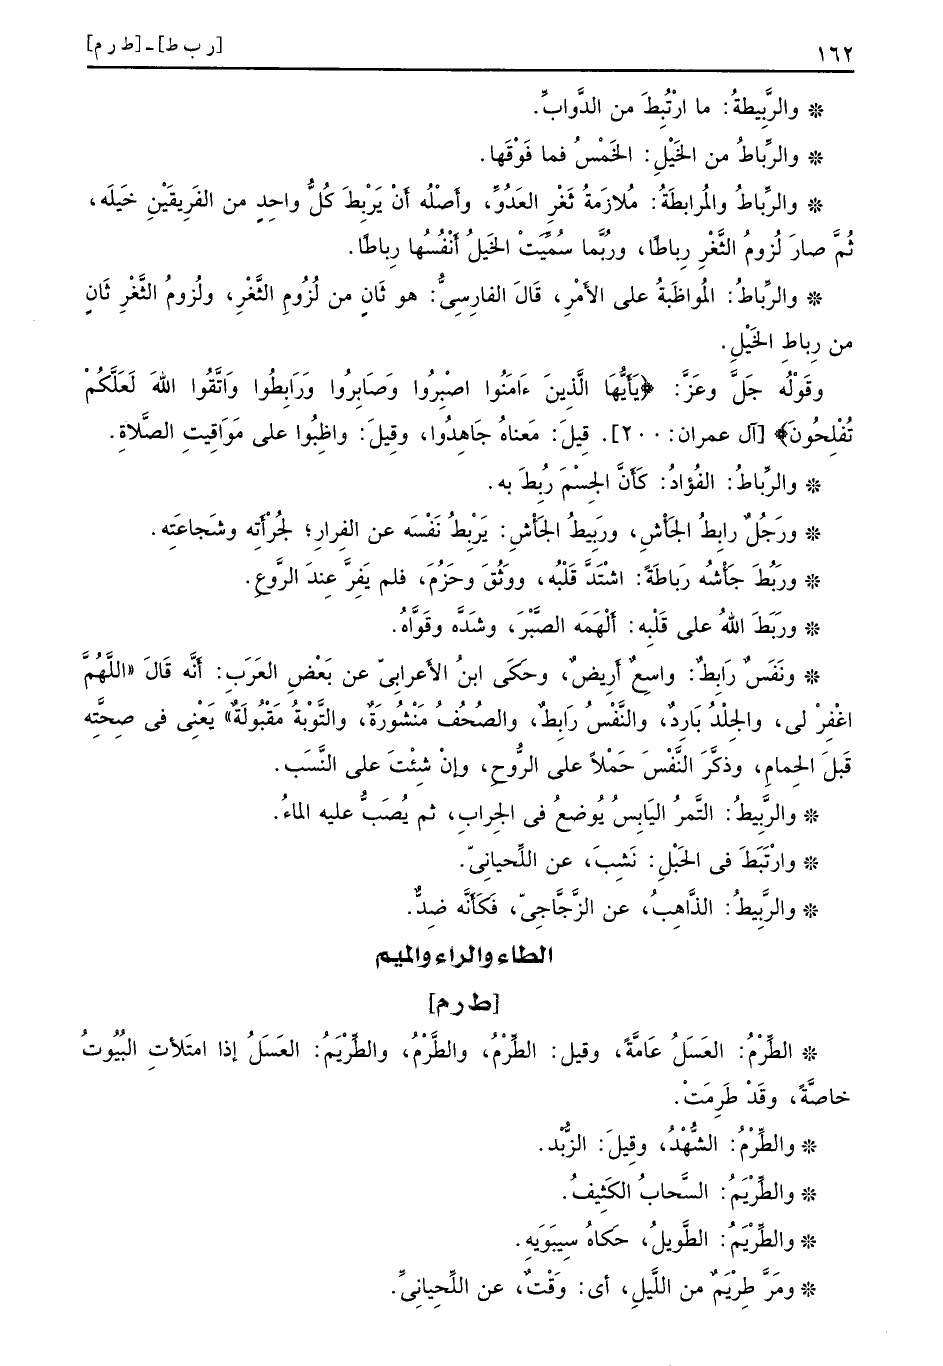 ١٦٢ [ر ب ط] ـ [ط ر م]
* والرَّبِيطةُ: ما ارْتُبِطَ من الدَّوابِّ.
* والرِّباطُ من الخَيْلِ: الخَمْسُ فما فَوْقَها.
* والرِّباطُ والمُرابطَةُ: مُلازمَةُ ثَغْرِ العَدُوِّ، وأصْلُه أنْ يَرْبِطَ كُلُّ واحِدٍ من الفَرِيقَيْنِ خَيلَه،
ثُمَّ صارَ لُزومُ الثَّغْرِ رِباطًا، ورُبَّما سُمِّيَتْ الخَيلُ أنْفُسُها رِباطًا.
* والرِّباطُ: المُواظَبةُ على الأمْرِ، قَالَ الفارِسِىُّ: هو ثَانٍ من لُزُومِ الثَّغْرِ، ولُزومُ الثَّغْرِ ثَانٍ
من رِباطِ الخَيْلِ.
وقَوْلُه جَلَّ وعَزَّ: ﴿يَأَيُّهَا الَّذِينَ ءَامَنُوا اصْبِرُوا وَصَابِرُوا وَرَابِطُوا وَاتَّقُوا اللهَ لَعَلَّكُمْ
تُفْلِحُونَ﴾ [آل عمران: ٢٠٠]. قِيلَ: مَعناهُ جَاهِدُوا، وقِيلَ: واظِبُوا على مَوَاقِيتِ الصَّلاةِ.
* والرِّباطُ: الفُؤادُ: كَأنَّ الجِسْمَ رُبِطَ به.
* ورَجُلٌ رابِطُ الجَأْشِ، ورَبِيطُ الجَأْشِ: يَرْبِطُ نَفْسَه عن الفِرارِ؛ لجُرْأتِه وشَجاعَتِه.
* ورَبُطَ جَأْشُه رَباطَةً: اشْتَدَّ قَلْبُه، ووَثُقَ وحَزُمَ، فلم يَفِرَّ عِندَ الرَّوعِ.
* ورَبَطَ اللهُ على قَلْبِه: ألْهَمَه الصَّبْرَ، وشَدَّه وقَوَّاهُ.
* ونَفَسٌ رَابِطٌ: واسِعٌ أرِيضٌ، وحَكَى ابنُ الأعرابىّ عن بَعْضِ العَرَبِ: أنَّه قَالَ «اللَّهُمَّ
اغْفِرْ لى، والجِلْدُ بَارِدٌ، والنَّفْسُ رَابِطٌ، والصُحُفُ مَنْشُورَةٌ، والتَّوْبةُ مَقْبُولَةٌ» يَعْنِى فى صِحَّتِه
قَبلَ الحِمامِ، وذكَّرَ النَّفْسَ حَمْلاً على الرُّوحِ، وإنْ شِئْتَ على النَّسَبِ.
* والرَّبِيطُ: التَّمرُ اليَابِسُ يُوضعُ فى الجِرابِ، ثم يُصَبُّ عليه الماءُ.
* وارْتَبَطَ فى الحَبْلِ: نَشِبَ، عن اللِّحيانِىّ.
* والرَّبِيطُ: الذَّاهِبُ، عن الزَّجَّاجِىّ، فَكَأنَّه ضِدٌّ.
الطاء والراء والميم
[ط ر م]
* الطِّرْمُ: العَسَلُ عَامَّةً، وقيل: الطِّرْمُ، والطَّرْمُ، والطِّرْيَمُ: العَسَلُ إذا امتَلأتِ البُيُوتُ
خاصَّةً، وقَدْ طَرِمَتْ.
* والطِّرْمُ: الشُّهْدُ، وقِيلَ: الزُّبْد.
* والطِّرْيَمُ: السَّحابُ الكَثِيفُ.
* والطِّرْيَمُ: الطَّوِيلُ، حَكاهُ سِيبَوَيهِ.
* ومَرَّ طِرْيَمٌ من اللَّيلِ، أى: وَقْتٌ، عن اللِّحيانِىِّ.